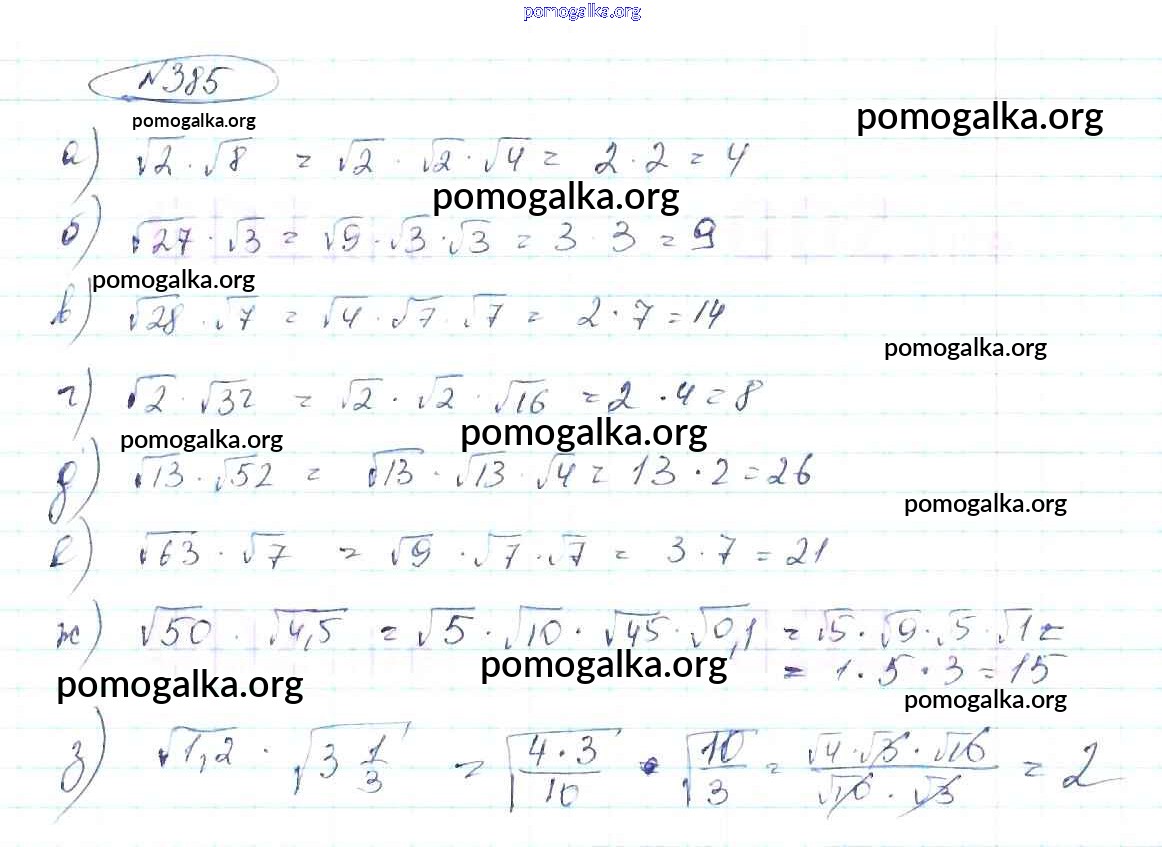 pomogalka.org
№385
pomogalka.org
pomogalka.org
а) √2 · √8 = √2 · √2 · √4 = 2 · 2 = 4
pomogalka.org
б) √27 · √3 = √9 · √3 · √3 = 3 · 3 = 9
pomogalka.org
в) √28 · √7 = √4 · √7 · √7 = 2 · 7 = 14
pomogalka.org
г) √2 · √32 = √2 · √2 · √16 = 2 · 4 = 8
pomogalka.org
pomogalka.org
д) √13 · √52 = √13 · √13 · √4 = 13 · 2 = 26
pomogalka.org
е) √63 · √7 = √9 · √7 · √7 = 3 · 7 = 21
ж) √50 · √4,5 = √5 · √10 · √45 · √0,1 = √5 · √9 · √5 · √1 =
= 1 · 5 · 3 = 15
pomogalka.org
pomogalka.org
pomogalka.org
з) √1,2 · √3 1/3 = √4·3/10 · √10/3 = √4 · √3 · √10/√10 · √3 = 2